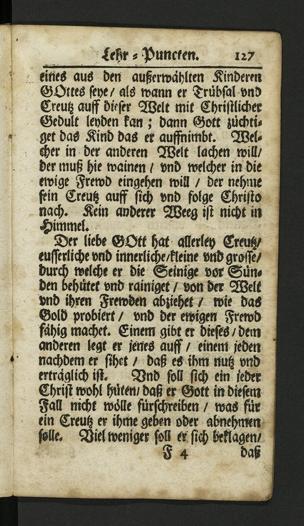 Lehr = Puncten. 127
eines aus den außerwählten Kinderen
GOttes seye / als wann er Trübsal vnd
Creutz auff dieser Welt mit Christlicher
Gedult leyden kan ; dann Gott züchti-
get das Kind das er auffnimbt. Wel-
cher in der anderen Welt lachen will/
der muß hie wainen / vnd welcher in die
ewige Frewd eingehen will / der nehme
sein Creutz auff sich vnd folge Christo
nach. Kein anderer Weeg ist nicht in
Himmel.
Der liebe GOtt hat allerley Creutz/
eusserliche vnd innerliche/kleine vnd grosse/
durch welche er die Seinige vor Sün-
den behütet vnd rainiget / von der Welt
vnd ihren Frewden abziehet / wie das
Gold probiert / vnd der ewigen Frewd
fähig machet. Einem gibt er dieses / dem
anderen legt er jenes auff / einem jeden
nachdem er sihet / daß es ihm nutz vnd
erträglich ist. Vnd soll sich ein jeder
Christ wohl hüten/daß er Gott in diesem
Fall nicht wölle fürschreiben / was für
ein Creutz er ihme geben oder abnehmen
solle. Viel weniger soll er sich beklagen/
F 4 daß